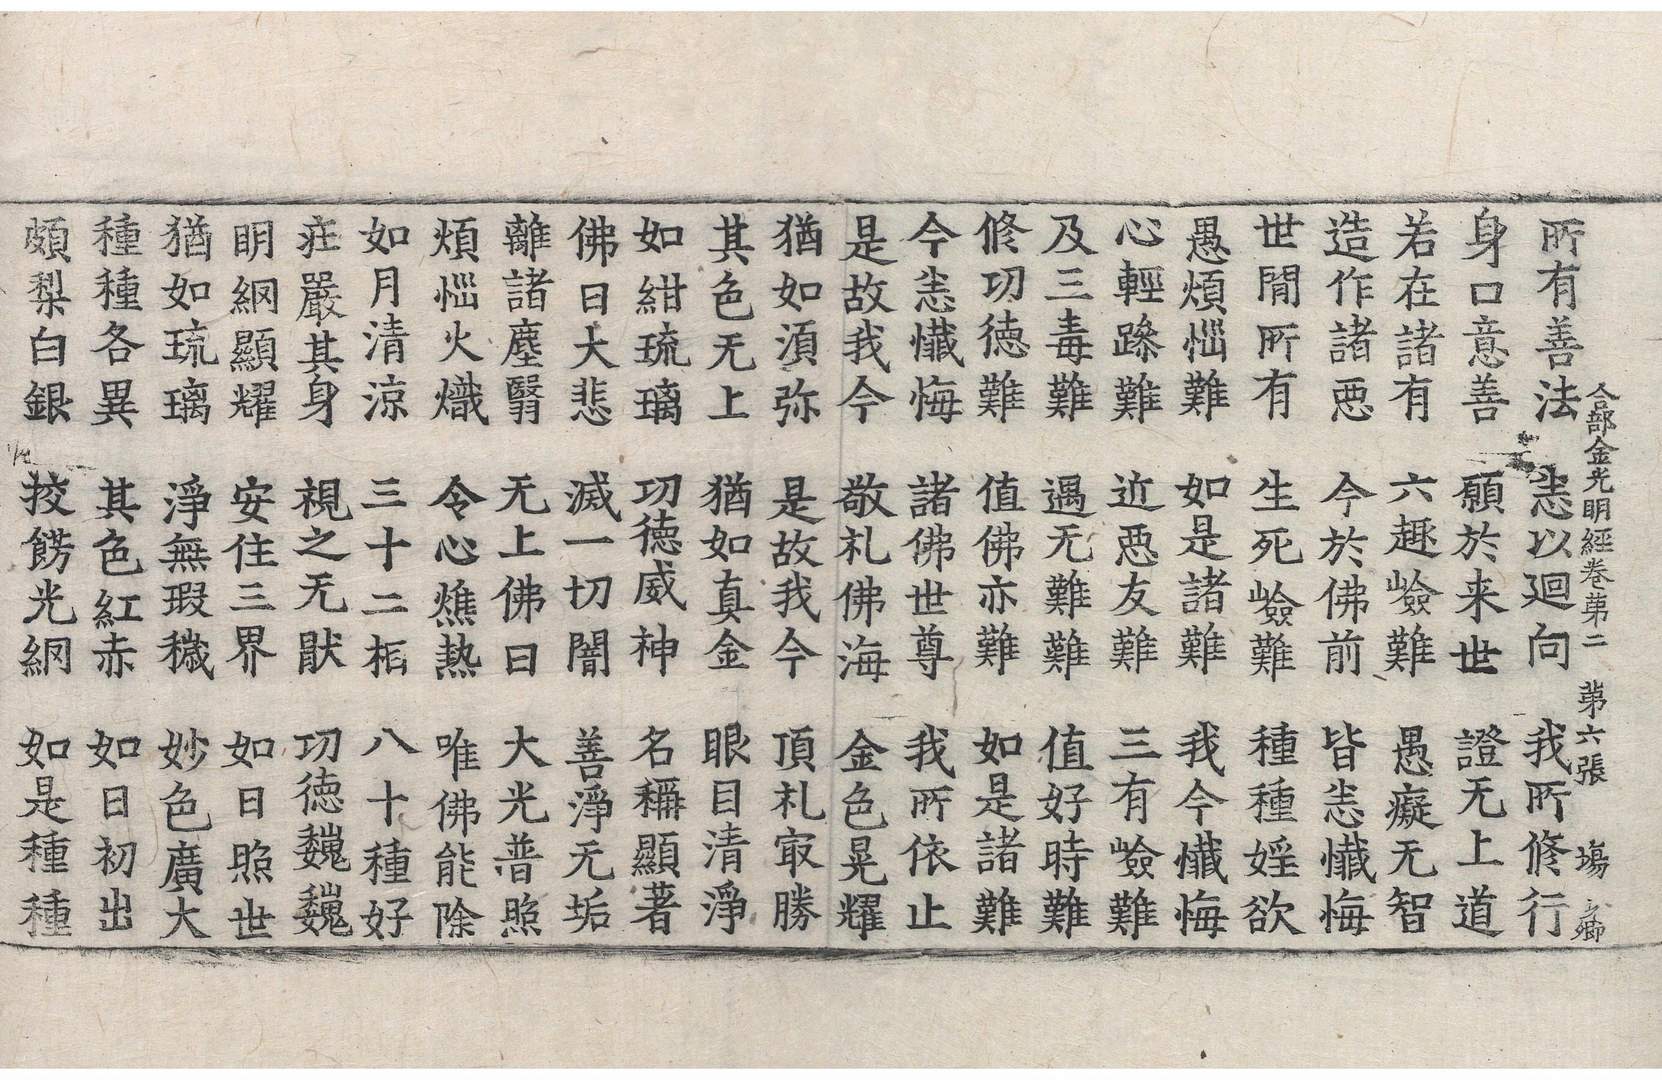 合部金光明經卷苐二 苐六張 場 ㇄卿
所有善法 恙以迴向 我所修行
身口意善 願於来世 證无上道
若在諸有 六趣嶮難 愚癡无智
造作諸惡 今於佛前 皆恙懴悔
世間所有 生死嶮難 種種婬欲
愚煩惱難 如是諸難 我今懴悔
心輕躁難 近惡友難 三有嶮難
及三毒難 遇无難難 值好時難
修功德難 值佛亦難 如是諸難
今恙懴悔 諸佛世尊 我所依止
是故我今 敬礼佛海 金色晃耀
猶如湏弥 是故我今 頂礼㝡勝
其色无上 猶如真金 眼目清淨
如紺琉璃 功德威神 名稱顯著
佛日大悲 滅一切闇 善淨无垢
離諸塵翳 无上佛日 大光普照
煩惱火熾 令心燋熱 唯佛能除
如月清涼 三十二相 八十種好
莊嚴其身 視之无猒 功德巍巍
明網顯耀 安住三界 如日照世
猶如琉璃 淨無瑕穢 妙色廣大
種種各異 其色紅赤 如日初出
頗梨白銀 挍餝光網 如是種種